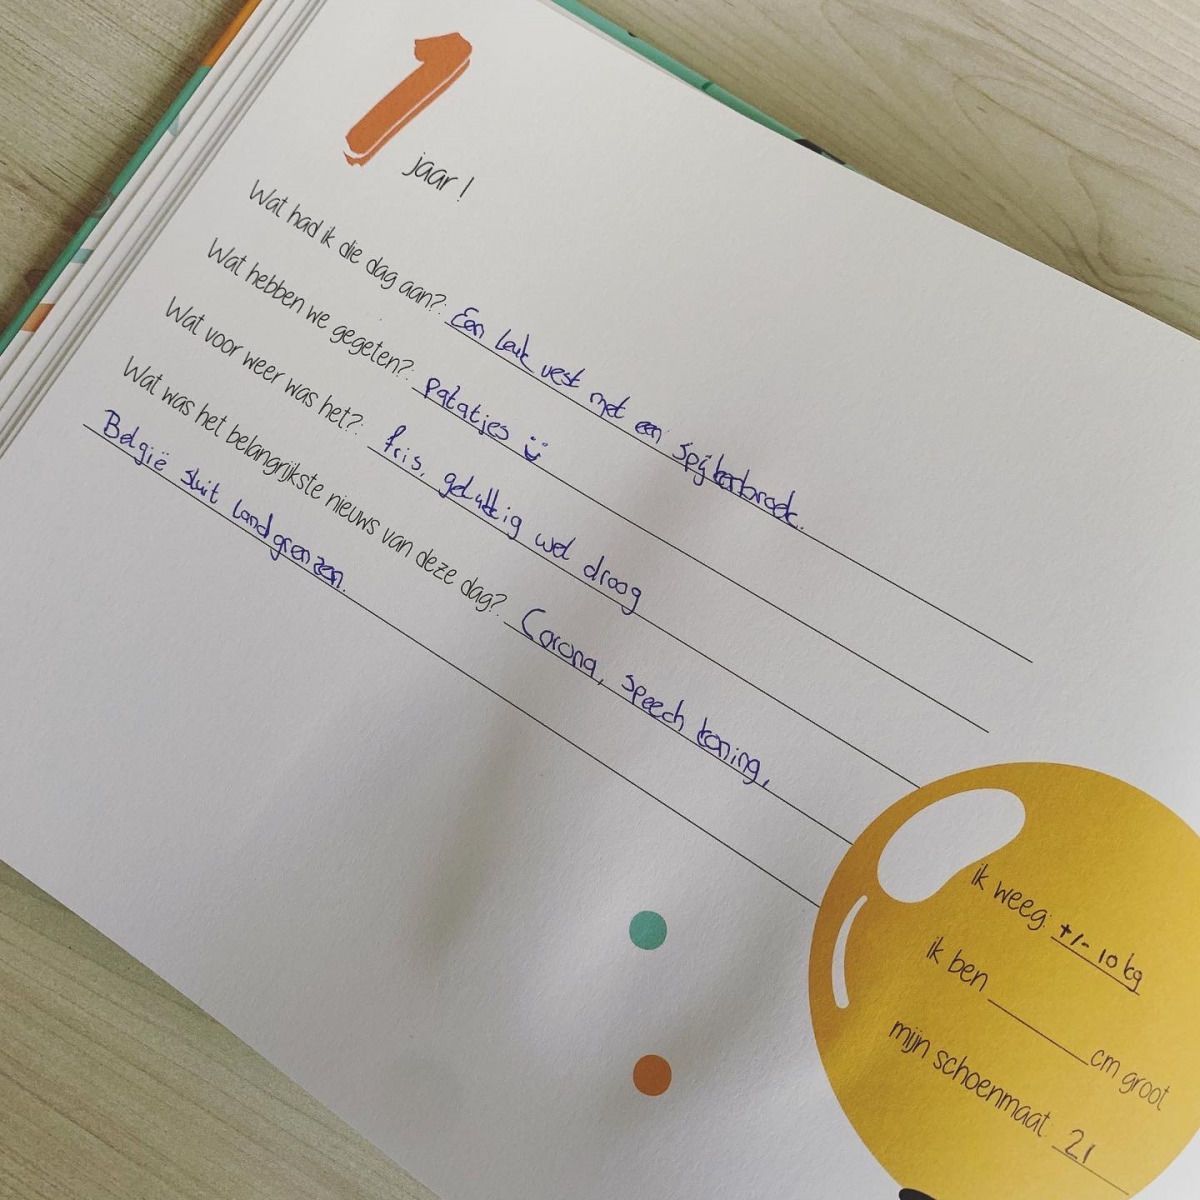 1
jaar!
Wat had ik die dag aan?: Een leuk vest met een spijkerbroek.
Wat hebben we gegeten?: patatjes
Wat voor weer was het?: fris, gelukkig wel droog
Wat was het belangrijkste nieuws van deze dag?: Corona, speech koning,
België sluit landgrenzen.
ik weeg: +/- 10 kg
ik ben ______ cm groot
mijn schoenmaat: 21